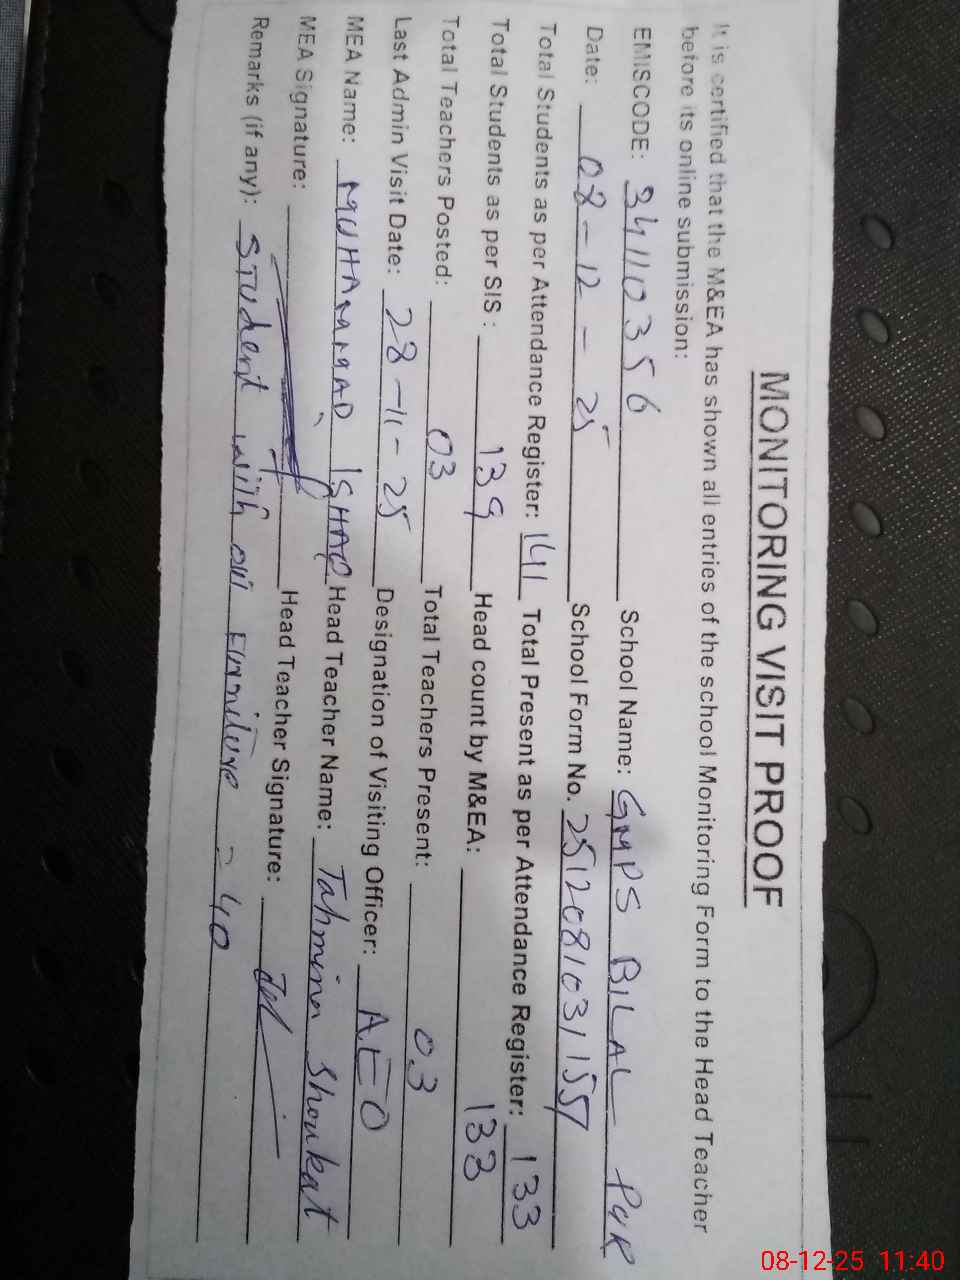 MONITORING VISIT PROOF
It is certified that the M&EA has shown all entries of the school Monitoring Form to the Head Teacher
before its online submission:
EMISCODE: 34110356 School Name: GMPS BILAL PUR
Date: 08-12-25 School Form No. 25120810311551
Total Students as per Attendance Register: 141 Total Present as per Attendance Register: 133
Total Students as per SIS: 139 Head count by M&EA: 133
Total Teachers Posted: 03 Total Teachers Present: 03
Last Admin Visit Date: 28-11-25 Designation of Visiting Officer: AEO
MEA Name: MUHAMMAD ISHAQ Head Teacher Name: Tahmina Shoukat
MEA Signature: Head Teacher Signature:
Remarks (if any): STUdent with out = 40
08-12-25 11:40